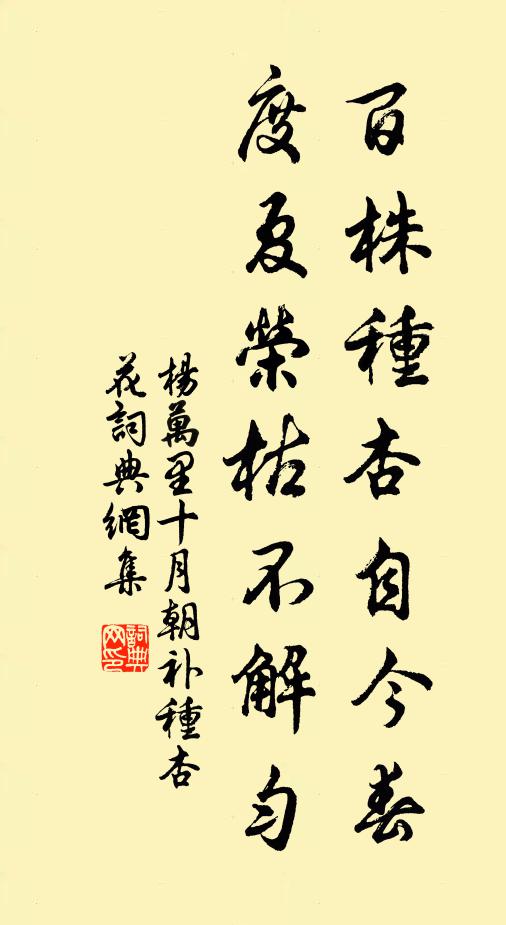 百株種杏自今春
度夏榮枯不解勻
楊萬里十月朝补種杏
花詞典網集
詞典
网印